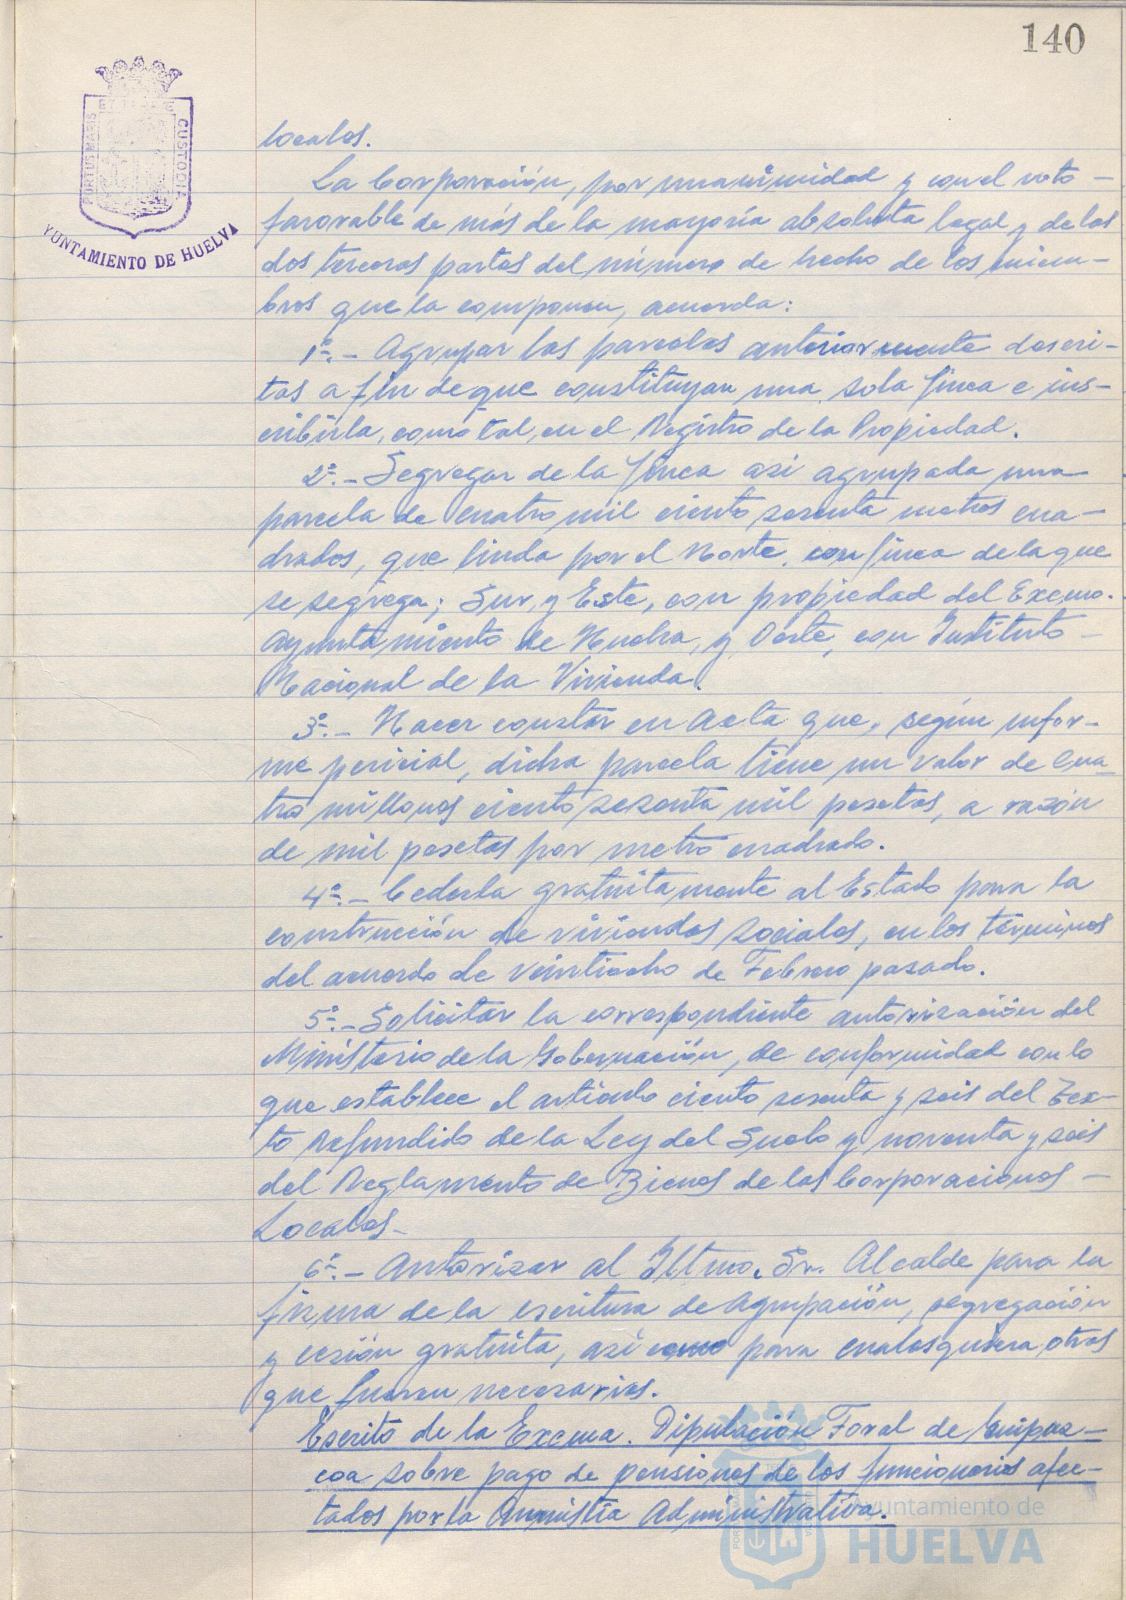 140
PORTUS MARIS ET TERRE CUSTODIA
AYUNTAMIENTO DE HUELVA
locales.
La Corporación, por unanimidad y con el voto -
favorable de más de la mayoría absoluta legal y de las
dos terceras partes del número de hecho de los miem-
bros que la componen, acuerda:
1º.- Agrupar las parcelas anteriormente descri-
tas a fin de que constituyan una sola finca e ins-
cribirla, como tal, en el Registro de la Propiedad.
2º.- Segregar de la finca así agrupada una
parcela de cuatro mil ciento sesenta metros cua-
drados, que linda por el Norte, con finca de la que
se segrega; Sur y Este, con propiedad del Excmo.
Ayuntamiento de Huelva, y Oeste, con Instituto -
Nacional de la Vivienda.
3º.- Hacer constar en acta que, según infor-
me pericial, dicha parcela tiene un valor de cua-
tro millones ciento sesenta mil pesetas, a razón
de mil pesetas por metro cuadrado.
4º.- Cederla gratuitamente al Estado para la
construcción de viviendas sociales, en los términos
del acuerdo de veintiocho de Febrero pasado.
5º.- Solicitar la correspondiente autorización del
Ministerio de la Gobernación, de conformidad con lo
que establece el artículo ciento sesenta y seis del Tex-
to Refundido de la Ley del Suelo y noventa y seis
del Reglamento de Bienes de las Corporaciones -
Locales-
6º.- Autorizar al Iltmo. Sr. Alcalde para la
firma de la escritura de agrupación, segregación
y cesión gratuita, así como para cualesquiera otros
que fueran necesarios.
Escrito de la Excma. Diputación Foral de Guipuz-
coa sobre pago de pensiones de los funcionarios afec-
tados por la Amnistía Administrativa.
Ayuntamiento de
HUELVA